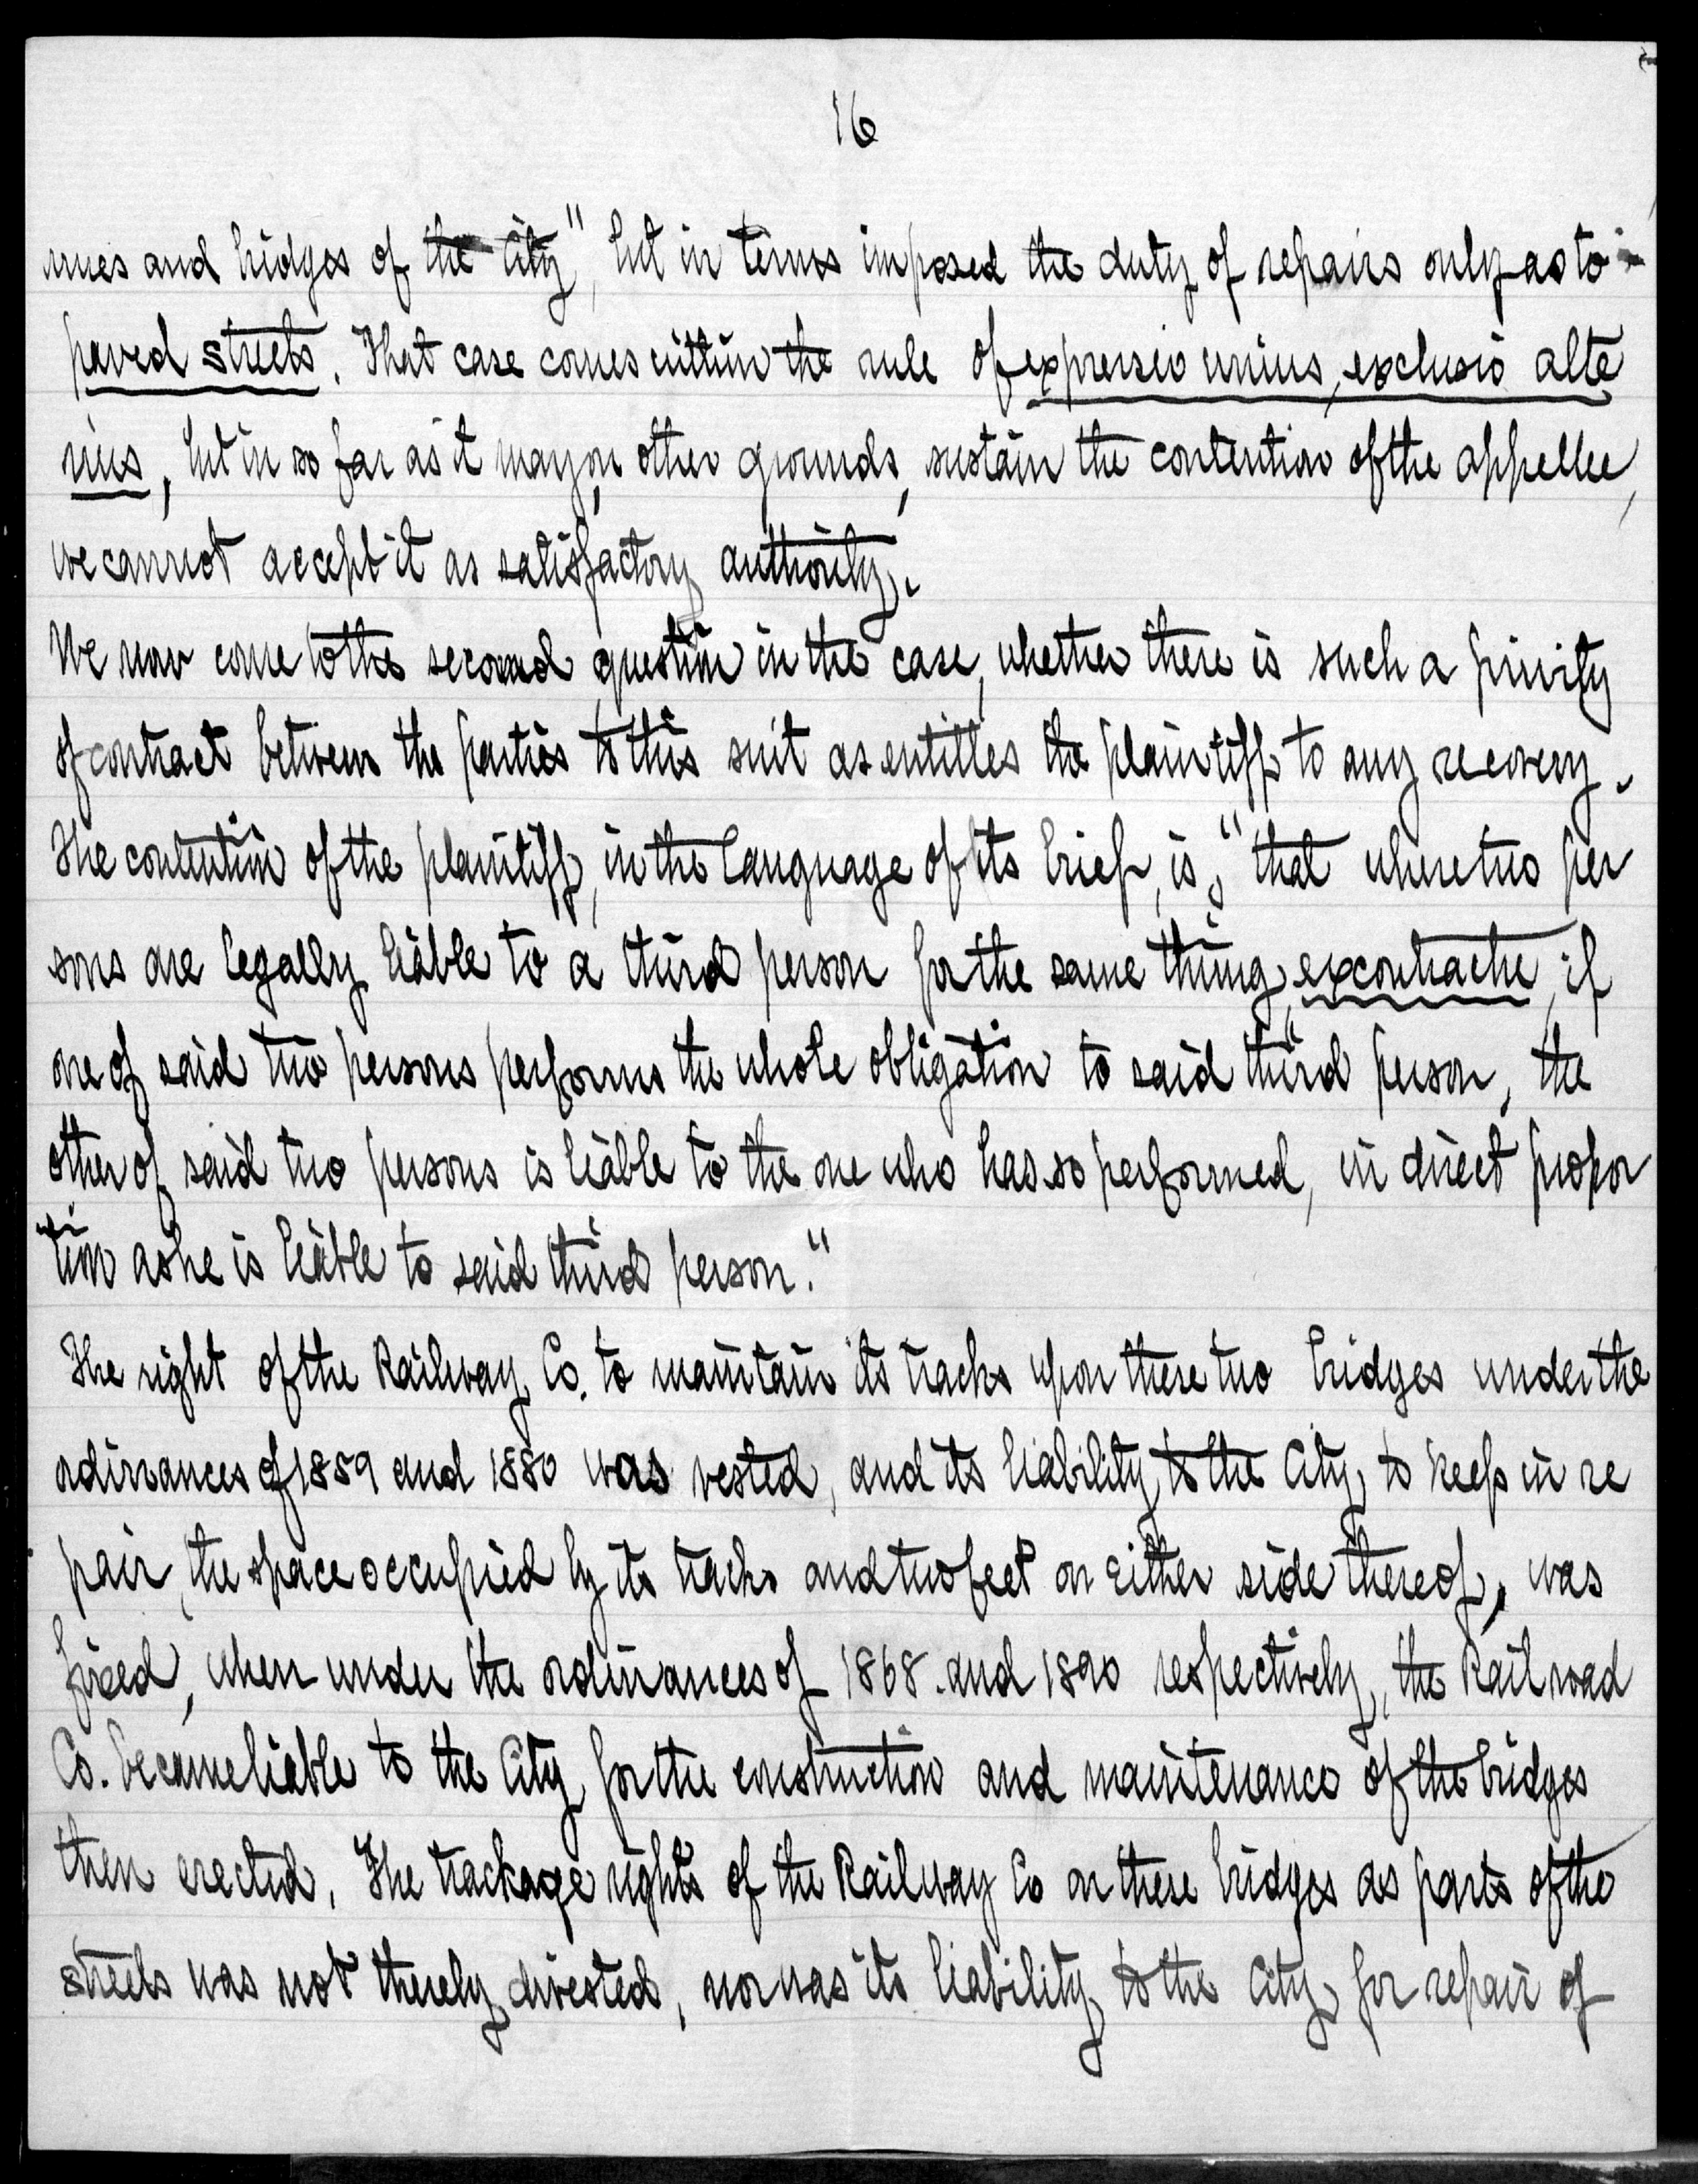 16
nues and bridges of the City", but in terms imposed the duty of repairs only as to
paved streets. That case comes within the rule of expressio unius, exclusio alte
rius, but in so far as it may, on other grounds, sustain the contention of the appellee,
we cannot accept it as satisfactory authority.
We now come to the second question in the case, whether there is such a privity
of contract between the parties to this suit as entitles the plaintiff to any recovery.
The contention of the plaintiff, in the language of its brief, is, "that where two per
sons are legally liable to a third person for the same thing, ex contractu, if
one of said two persons performs the whole obligation to said third person, the
other of said two persons is liable to the one who has so performed, in direct propor
tion as he is liable to said third person."
The right of the Railway Co. to maintain its tracks upon these two bridges under the
ordinances of 1859 and 1880 was vested, and its liability, to the City, to keep in re
pair, the space occupied by its tracks and two feet on either side thereof, was
fixed, when under the ordinances of 1868 and 1890 respectively, the Railroad
Co. became liable to the City for the construction and maintenance of the bridges
then erected. The trackage rights of the Railway Co on these bridges as parts of the
streets was not thereby divested, nor was its liability to the City for repair of